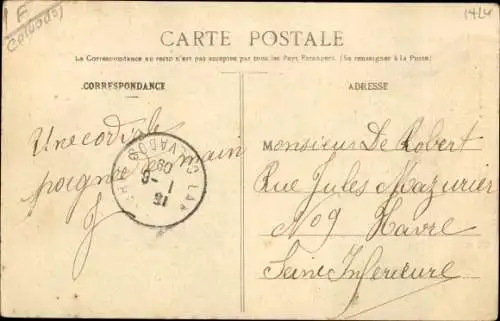 F
Calvados
1424
CARTE POSTALE
La Correspondance au recto n'est pas acceptée par tous les Pays Étrangers. (Se renseigner à la Poste)
CORRESPONDANCE
ADRESSE
Une cordiale
poignée de main
J
CALVADOS
Monsieur De Robert
Rue Jules Mazurier
No 9 Havre
Seine Inferieure